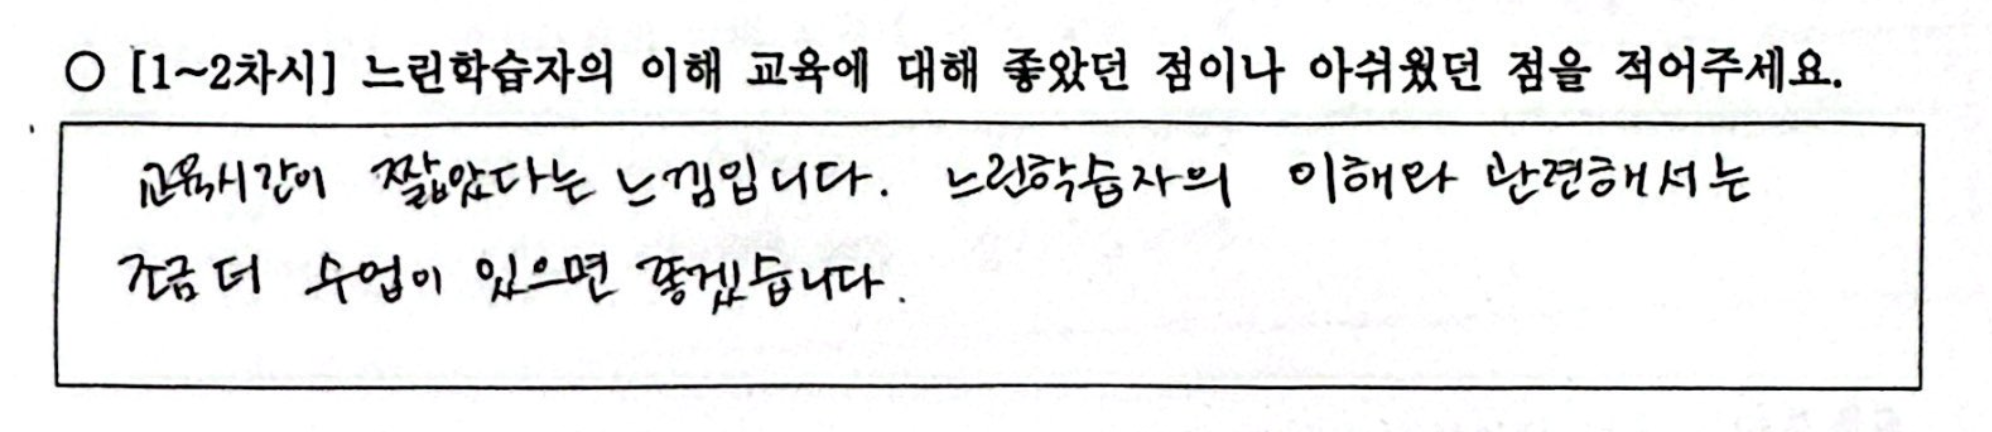 ○ [1~2차시] 느린학습자의 이해 교육에 대해 좋았던 점이나 아쉬웠던 점을 적어주세요.
교육시간이 짧았다는 느낌입니다. 느린학습자의 이해와 관련해서는
조금 더 수업이 있으면 좋겠습니다.